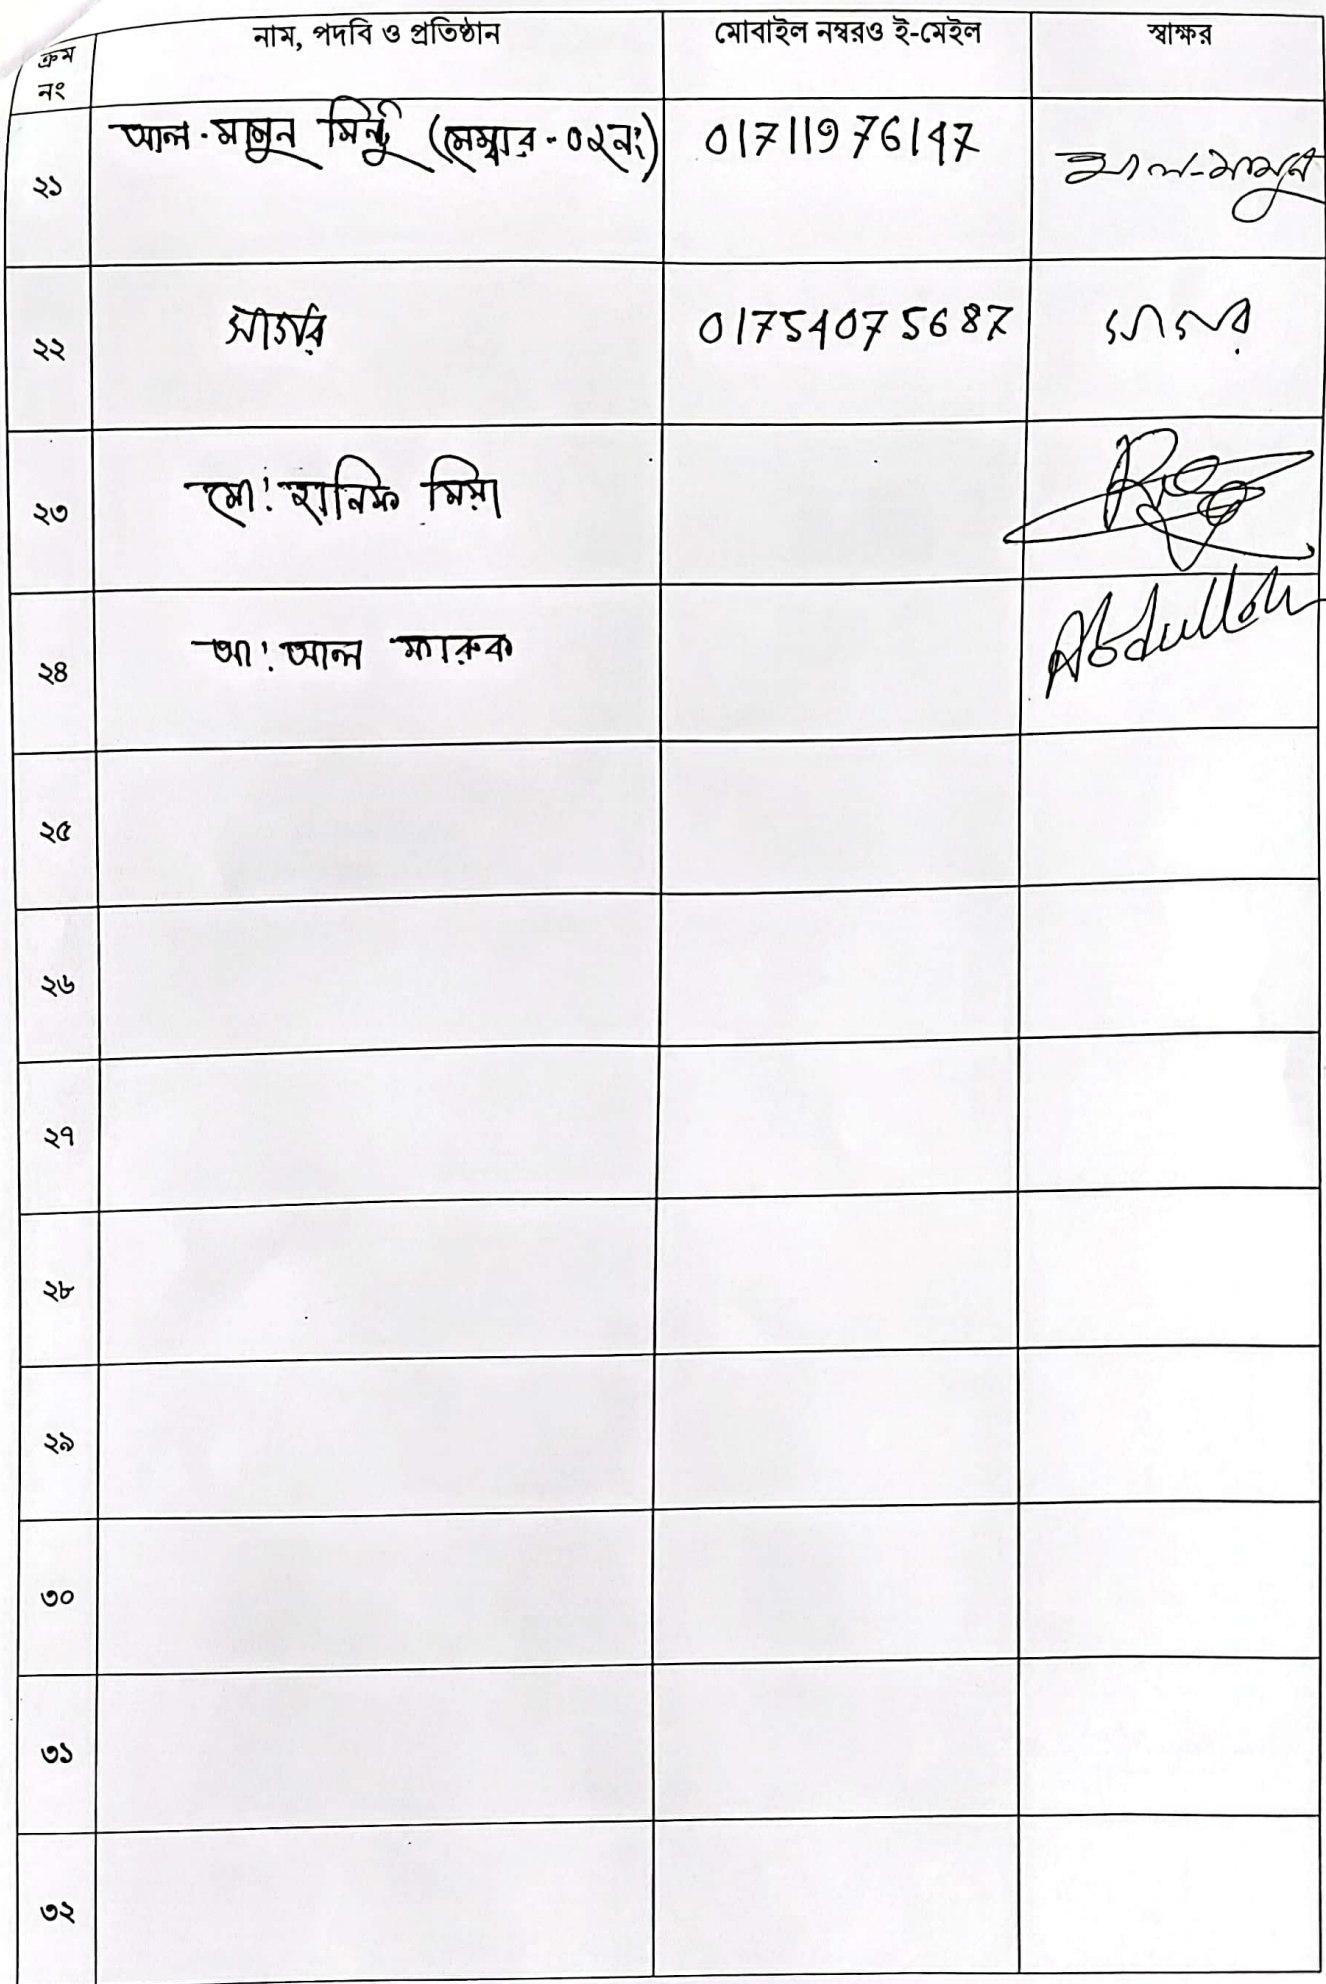 ক্রম নং নাম, পদবি ও প্রতিষ্ঠান মোবাইল নম্বরও ই-মেইল স্বাক্ষর
২১ আল-মামুন মিন্টু (মেম্বার-০২নং) 01711976147 আল-মামুন
২২ সাগর 01754075687 সাগর
২৩ মো: হানিফ মিয়া
২৪ আ: আল ফারুক Abdullah
২৫
২৬
২৭
২৮
২৯
৩০
৩১
৩২